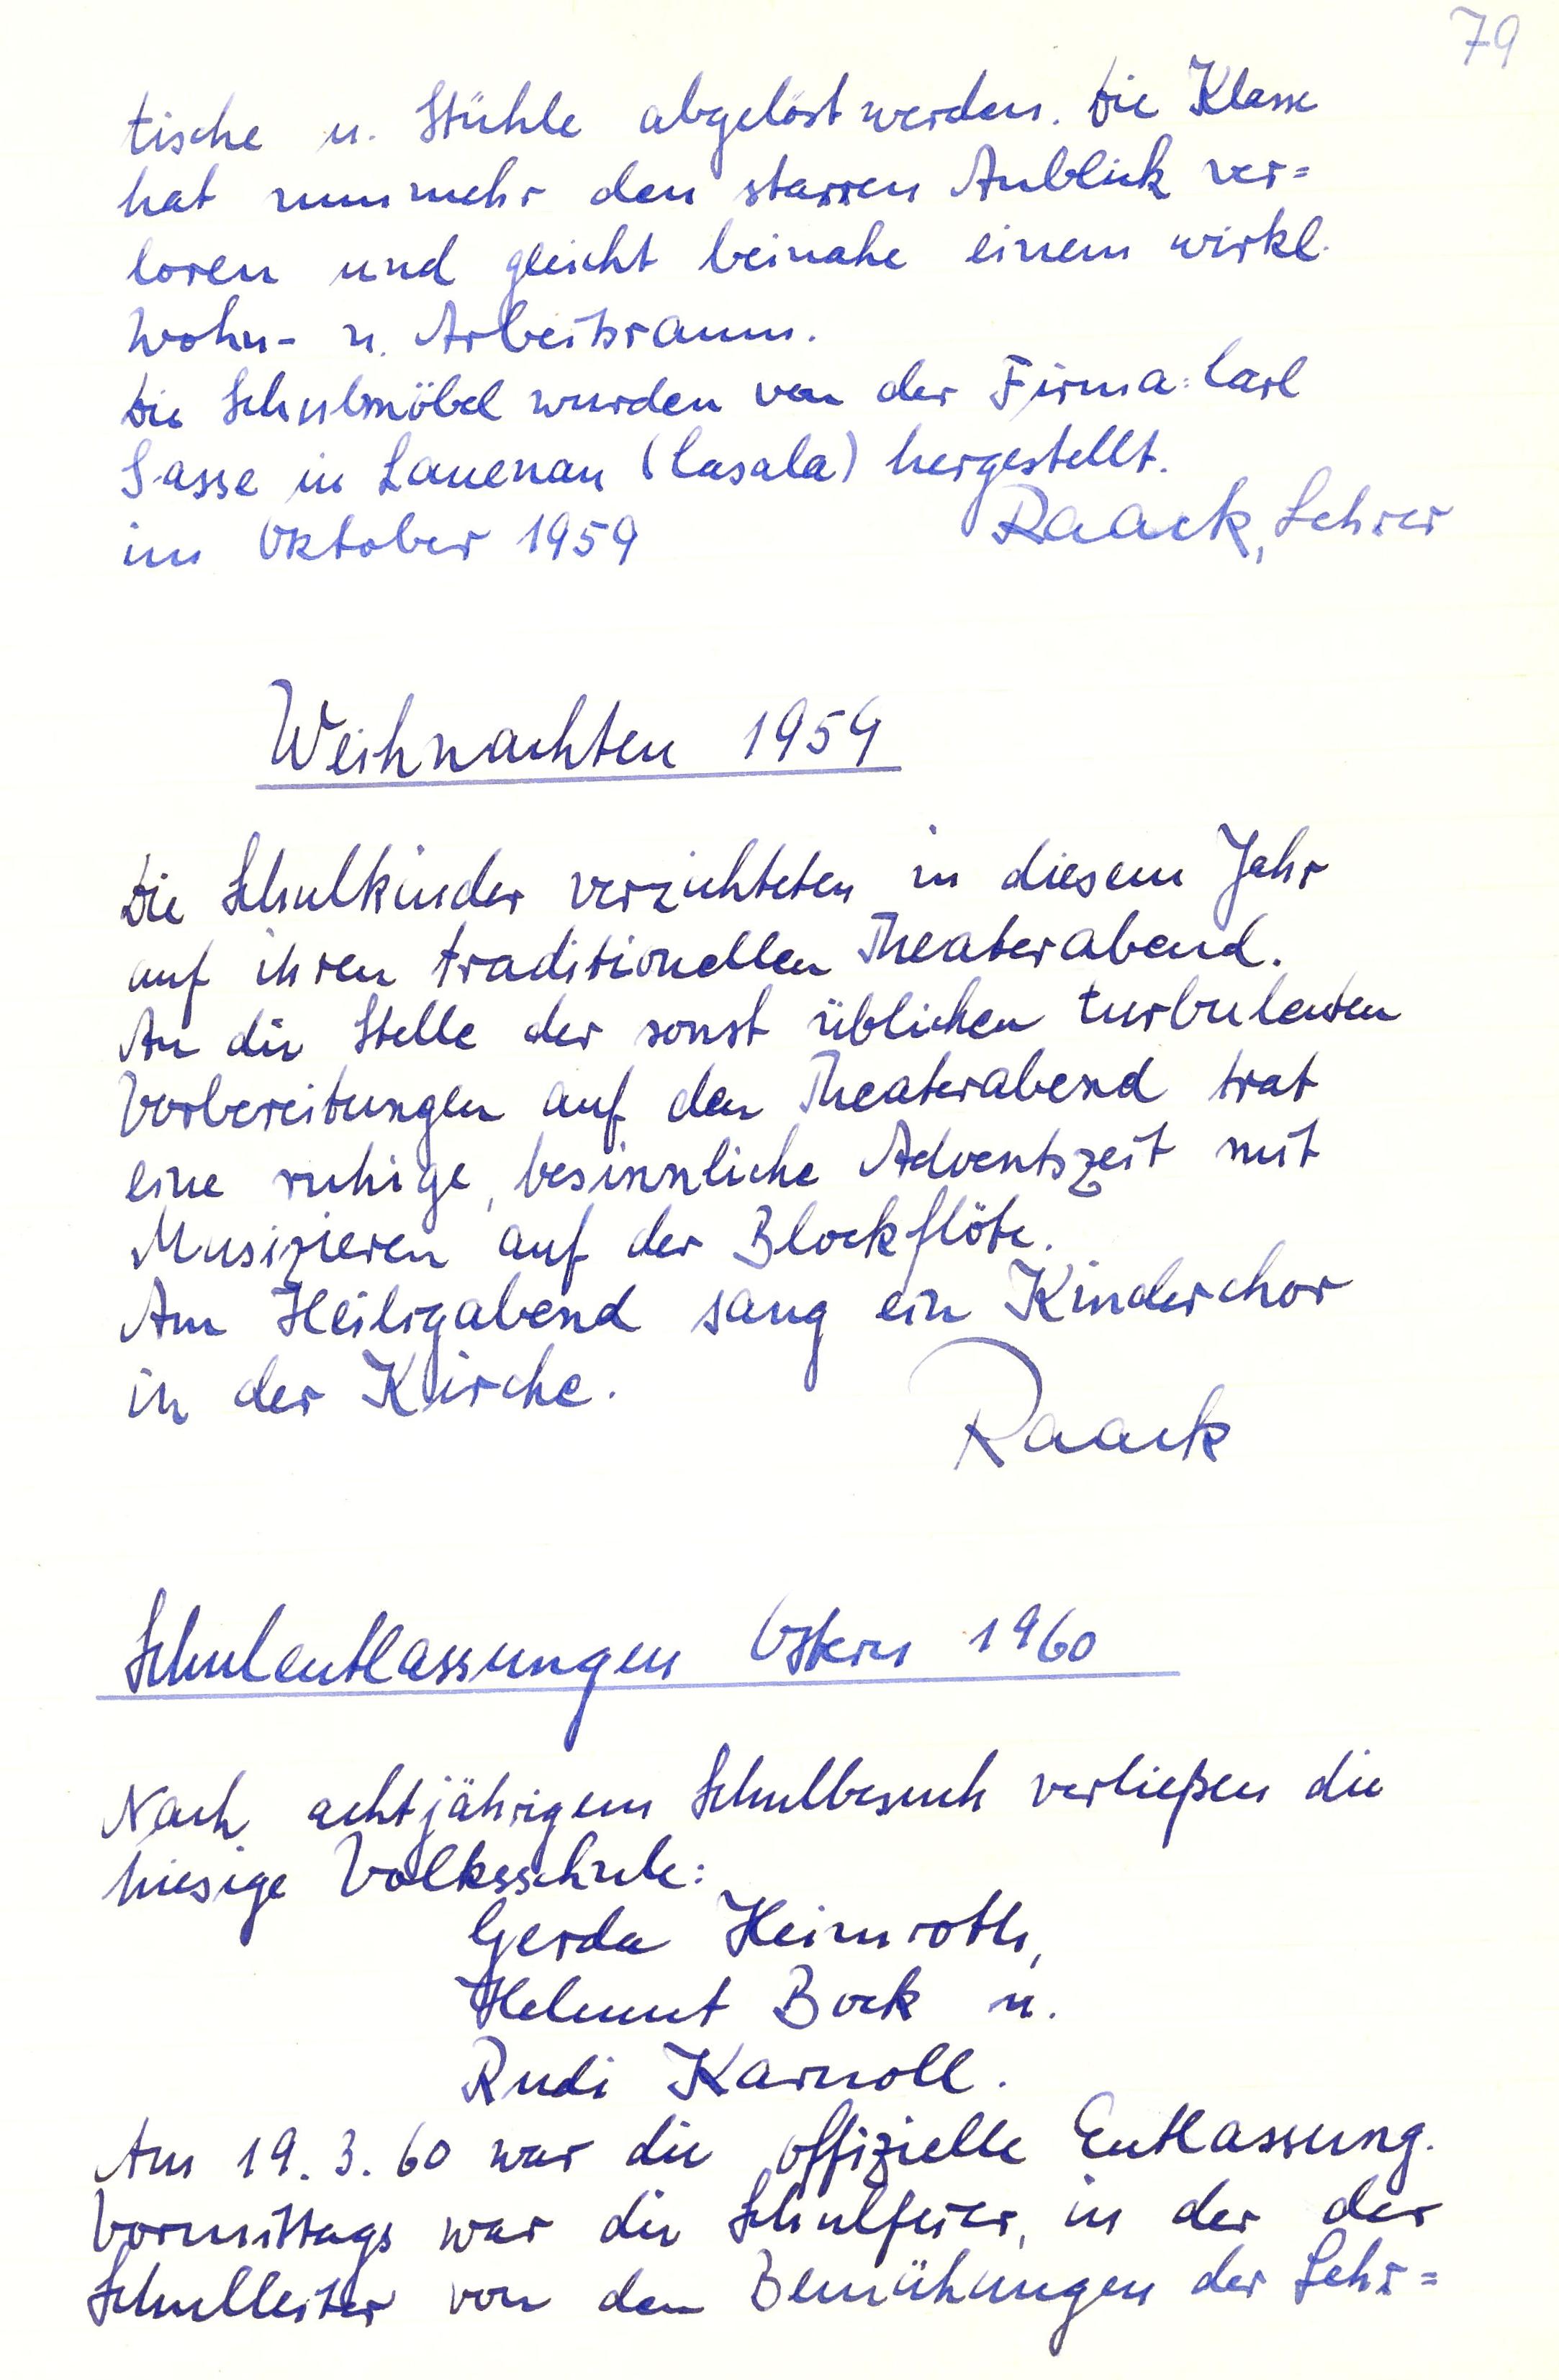 79
tische u. Stühle abgelöst werden. Die Klasse
hat nunmehr den starren Anblick ver=
loren und gleicht beinahe einem wirkl.
Wohn- u. Arbeitsraum.
Die Schulmöbel wurden von der Firma: Carl
Sasse in Lauenau (Casala) hergestellt.
im Oktober 1959 Raack, Lehrer
Weihnachten 1959
Die Schulkinder verzichteten in diesem Jahr
auf ihren traditionellen Theaterabend.
An die Stelle der sonst üblichen turbulenten
Vorbereitungen auf den Theaterabend trat
eine ruhige, besinnliche Adventszeit mit
Musizieren auf der Blockflöte.
Am Heiligabend sang ein Kinderchor
in der Kirche.
Raack
Schulentlassungen Ostern 1960
Nach achtjährigem Schulbesuch verließen die
hiesige Volksschule:
Gerda Heimroth,
Helmut Bock u.
Rudi Karnoll.
Am 19. 3. 60 war die offizielle Entlassung.
Vormittags war die Schulfeier, in der der
Schulleiter von den Bemühungen der Lehr=